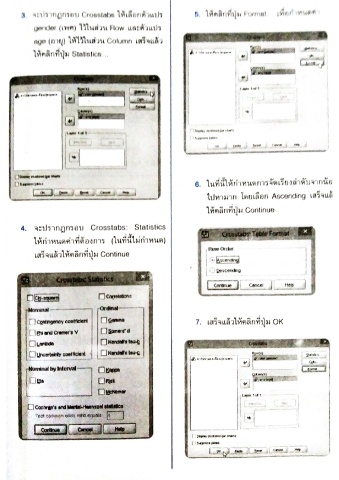 3. จะปรากฏกรอบ Crosstabs ให้เลือกตัวแปร
gender (เพศ) ไว้ในส่วน Row และตัวแปร
age (อายุ) ให้ไว้ในส่วน Column เสร็จแล้ว
ให้คลิกที่ปุ่ม Statistics...
4. จะปรากฏกรอบ Crosstabs: Statistics
ให้กำหนดค่าที่ต้องการ (ในที่นี้ไม่กำหนด)
เสร็จแล้วให้คลิกที่ปุ่ม Continue
Crosstabs: Statistics
Chi-square
Correlations
Nominal
Ordinal
Contingency coefficient
Gamma
Phi and Cramer's V
Somers' d
Lambda
Kendall's tau-b
Uncertainty coefficient
Kendall's tau-c
Nominal by Interval
Kappa
Eta
Risk
McNemar
Cochran's and Mantel-Haenszel statistics
Test common odds ratio equals
Continue Cancel Help
5. ให้คลิกที่ปุ่ม Format เพื่อกำหนดค่า
6. ในที่นี้ให้กำหนดการจัดเรียงลำดับจากน้อย
ไปหามาก โดยเลือก Ascending เสร็จแล้ว
ให้คลิกที่ปุ่ม Continue
Crosstabs: Table Format
Row Order
Ascending
Descending
Continue Cancel Help
7. เสร็จแล้วให้คลิกที่ปุ่ม OK